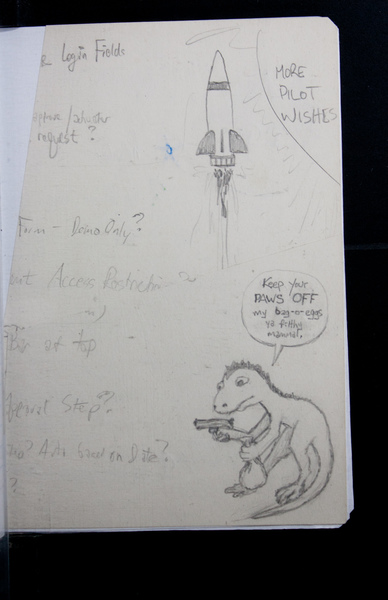 Login Fields
MORE
PILOT
WISHES
request?
Form - Demo Only?
Access Restriction
top
Keep your
PAWS OFF
my bag-o-eggs
ya filthy
mammal.
Special Step?
based on Date?
?